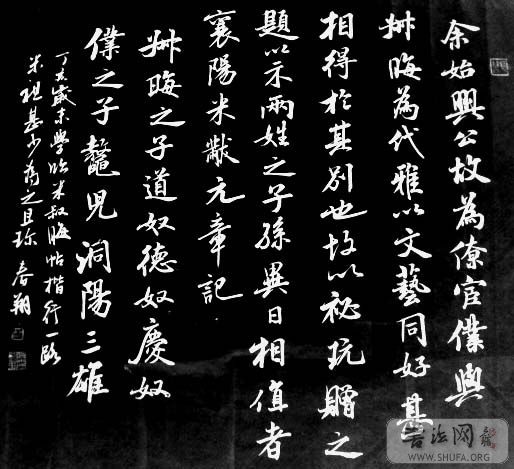 余始興公故為僚官僕與
叔晦為代雅以文藝同好甚
相得於其别也故以祕玩贈之
題以示兩姓之子孫異日相值者
襄陽米黻元章記
叔晦之子道奴德奴慶奴
僕之子鼇兒洞陽三雄
丁亥歲末學臨米叔晦帖楷行一路
米現甚少為之且珍 春翔
书法网
WWW.SHUFA.ORG